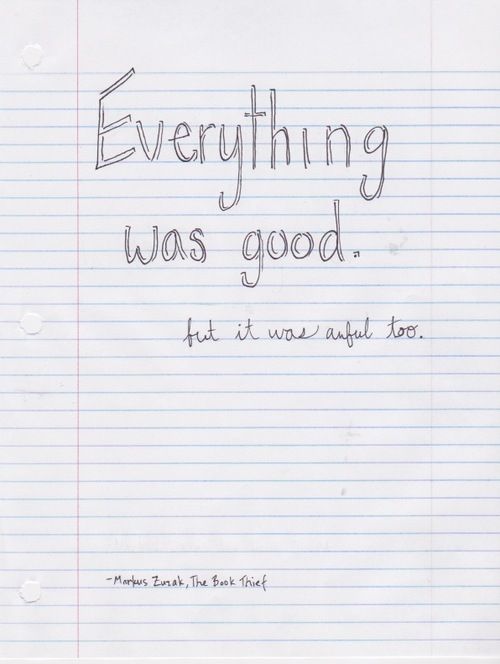 Everything
was good.
but it was awful too.
-Markus Zusak, The Book Thief